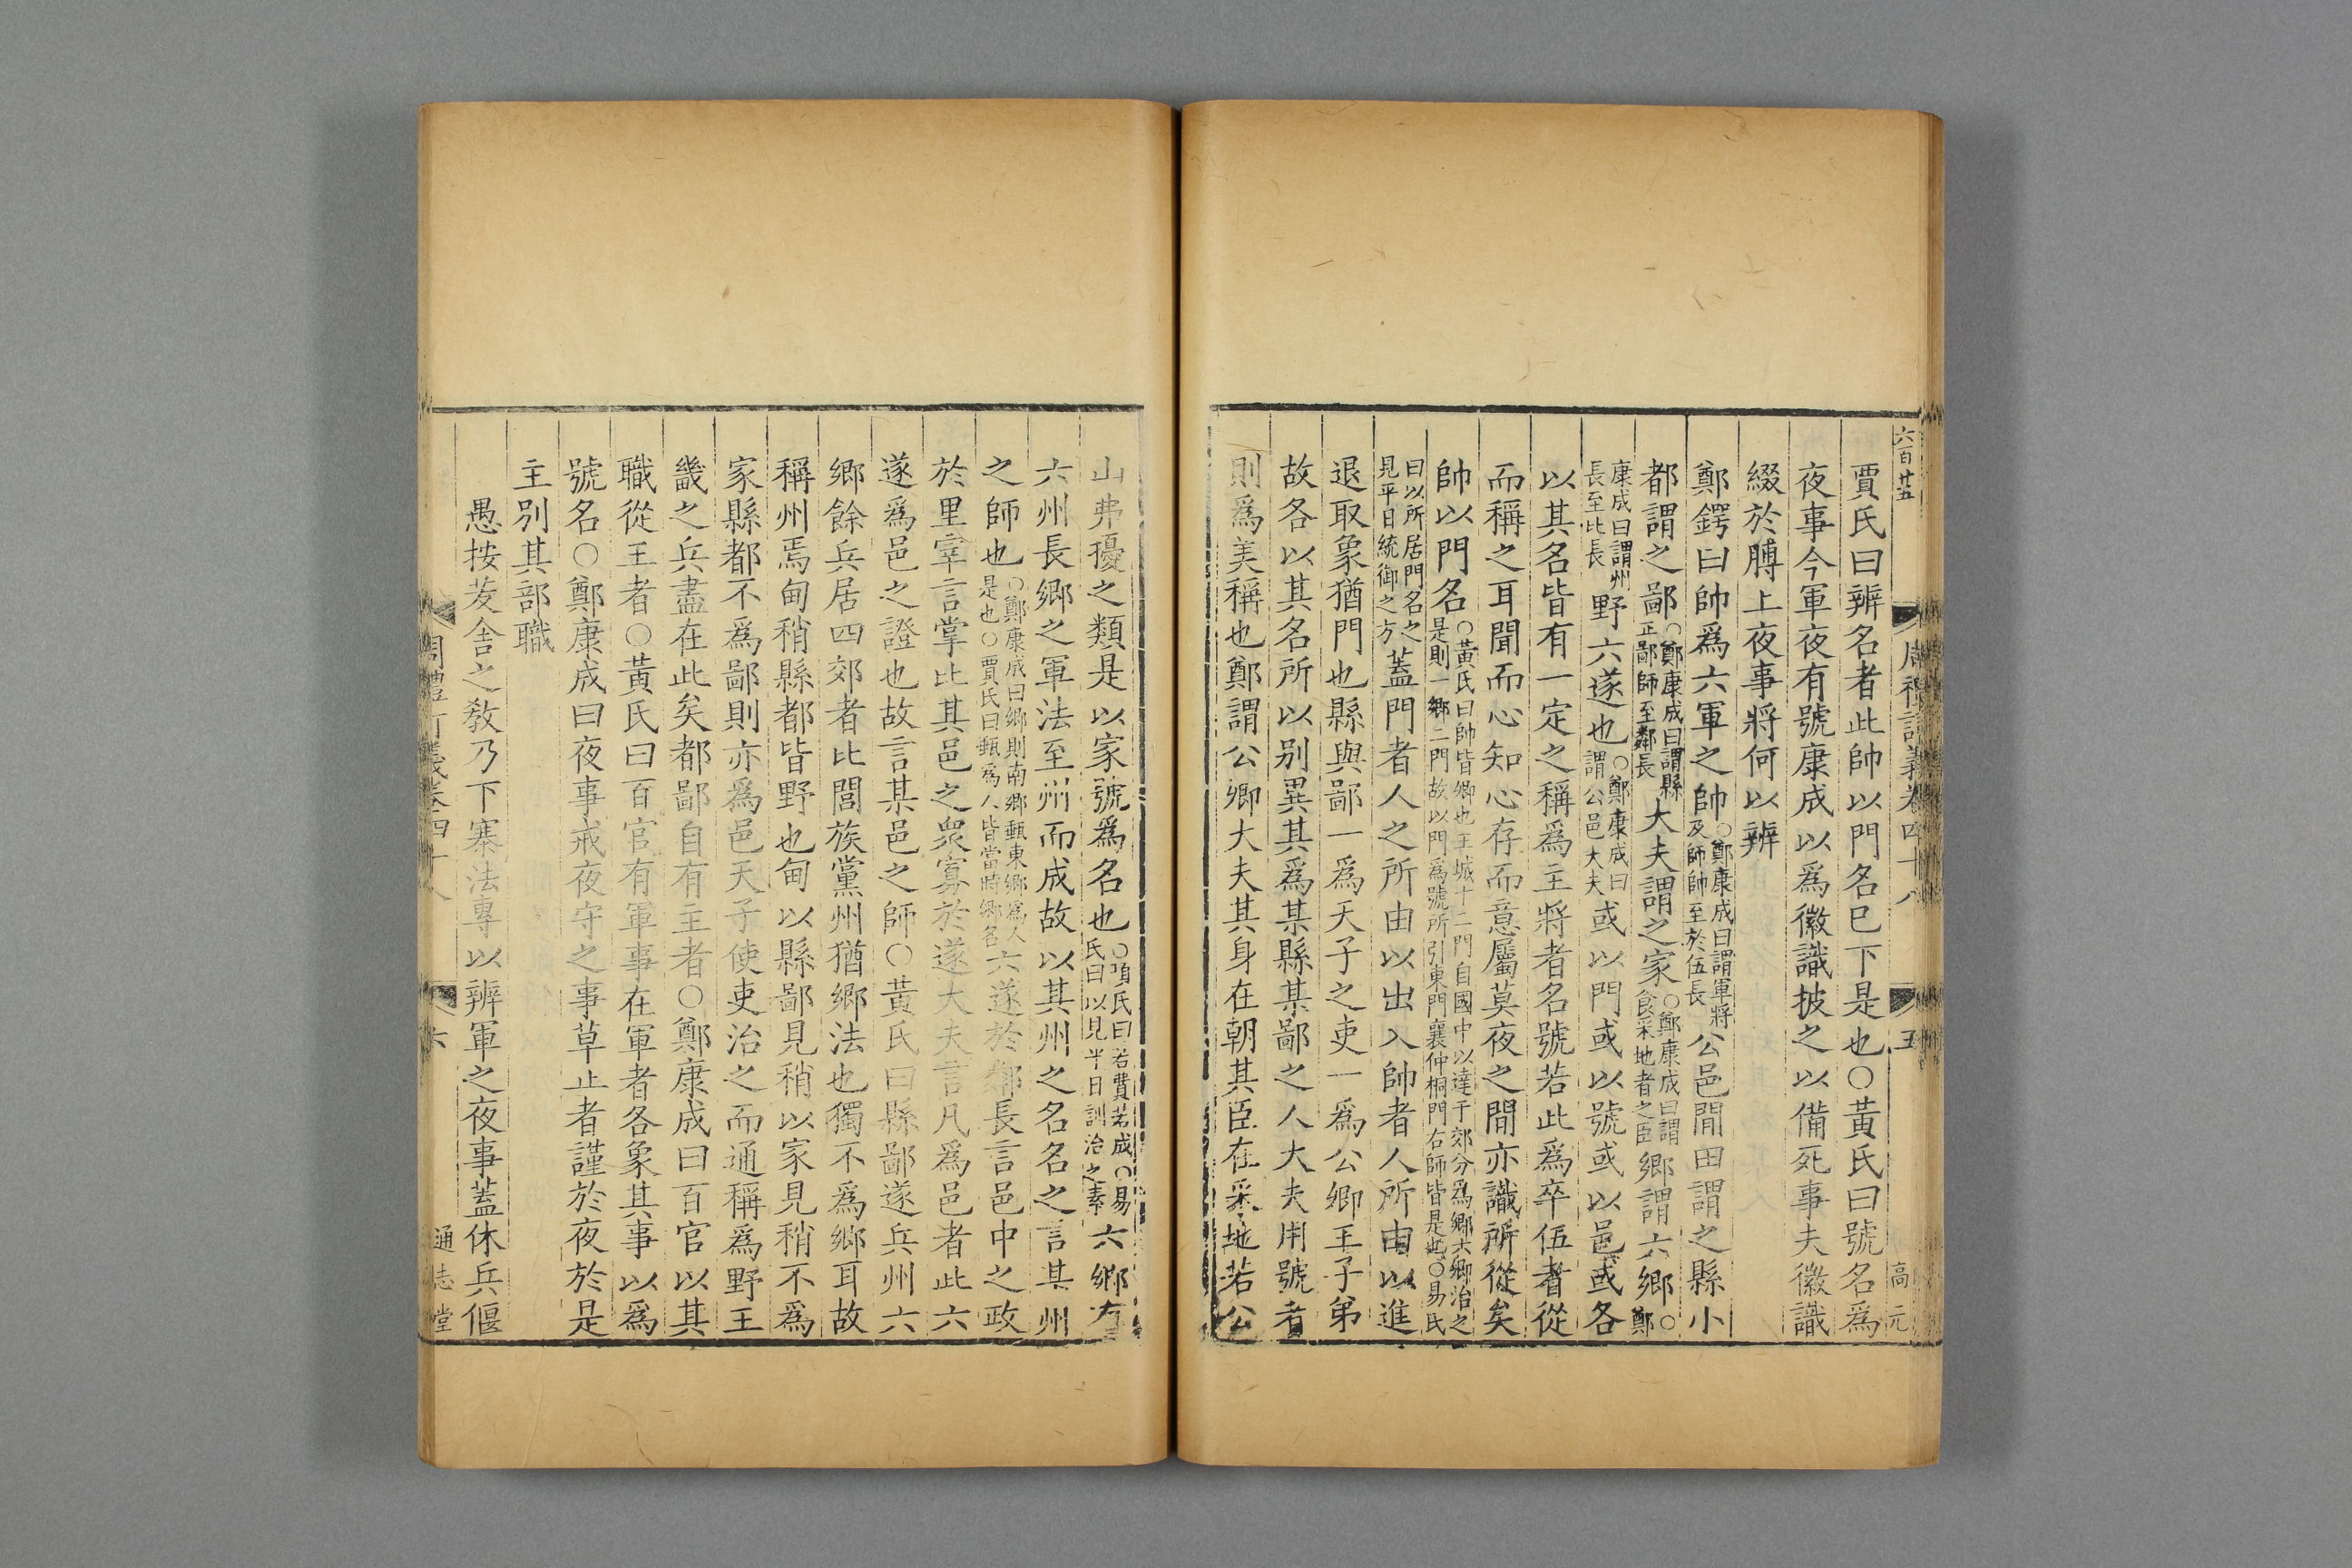 六百廿五
周禮訂義卷四十八
五
高元
賈氏曰辨名者此帥以門名巳下是也○黃氏曰號名爲
夜事今軍夜有號康成以爲徽識披之以備死事夫徽識
綴於膊上夜事將何以辨
鄭鍔曰帥爲六軍之帥○鄭康成曰謂軍將及師帥至於伍長公邑閒田謂之縣小
都謂之鄙○鄭康成曰謂縣正鄙師至鄰長大夫謂之家○鄭康成曰謂食采地者之臣鄉謂六鄉○鄭
康成曰謂州長至比長野六遂也○鄭康成曰謂公邑大夫或以門或以號或以邑或各
以其名皆有一定之稱爲主將者名號若此爲卒伍者從
而稱之耳聞而心知心存而意屬莫夜之間亦識所從矣
帥以門名○黃氏曰帥皆卿也王城十二門自國中以達于郊分爲鄉六卿治之是則一鄉二門故以門爲號所引東門襄仲桐門右師皆是也○易氏
曰以所居門名之見平日統御之方蓋門者人之所由以出入帥者人所由以進
退取象猶門也縣與鄙一爲天子之吏一爲公卿王子弟
故各以其名所以别異其爲某縣某鄙之人大夫用號者
則爲美稱也鄭謂公卿大夫其身在朝其臣在采地若公
山弗擾之類是以家號爲名也○項氏曰若費若成○易氏曰以見平日訓治之素六鄉有
六州長鄉之軍法至州而成故以其州之名名之言其州
之師也○鄭康成曰鄉則南鄉甄東鄉爲人是也○賈氏曰甄爲人皆當時鄉名六遂於鄰長言邑中之政
於里宰言掌比其邑之衆寡於遂大夫言凡爲邑者此六
遂爲邑之證也故言某邑之師○黃氏曰縣鄙遂兵州六
鄉餘兵居四郊者比閭族黨州猶鄉法也獨不爲鄉耳故
稱州焉甸稍縣都皆野也甸以縣鄙見稍以家見稍不爲
家縣都不爲鄙則亦爲邑天子使吏治之而通稱爲野王
畿之兵盡在此矣都鄙自有主者○鄭康成曰百官以其
職從王者○黃氏曰百官有軍事在軍者各象其事以爲
號名○鄭康成曰夜事戒夜守之事草止者謹於夜於是
主别其部職
愚按茇舍之敎乃下寨法專以辨軍之夜事蓋休兵偃
周禮訂義卷四十八
六
通志堂